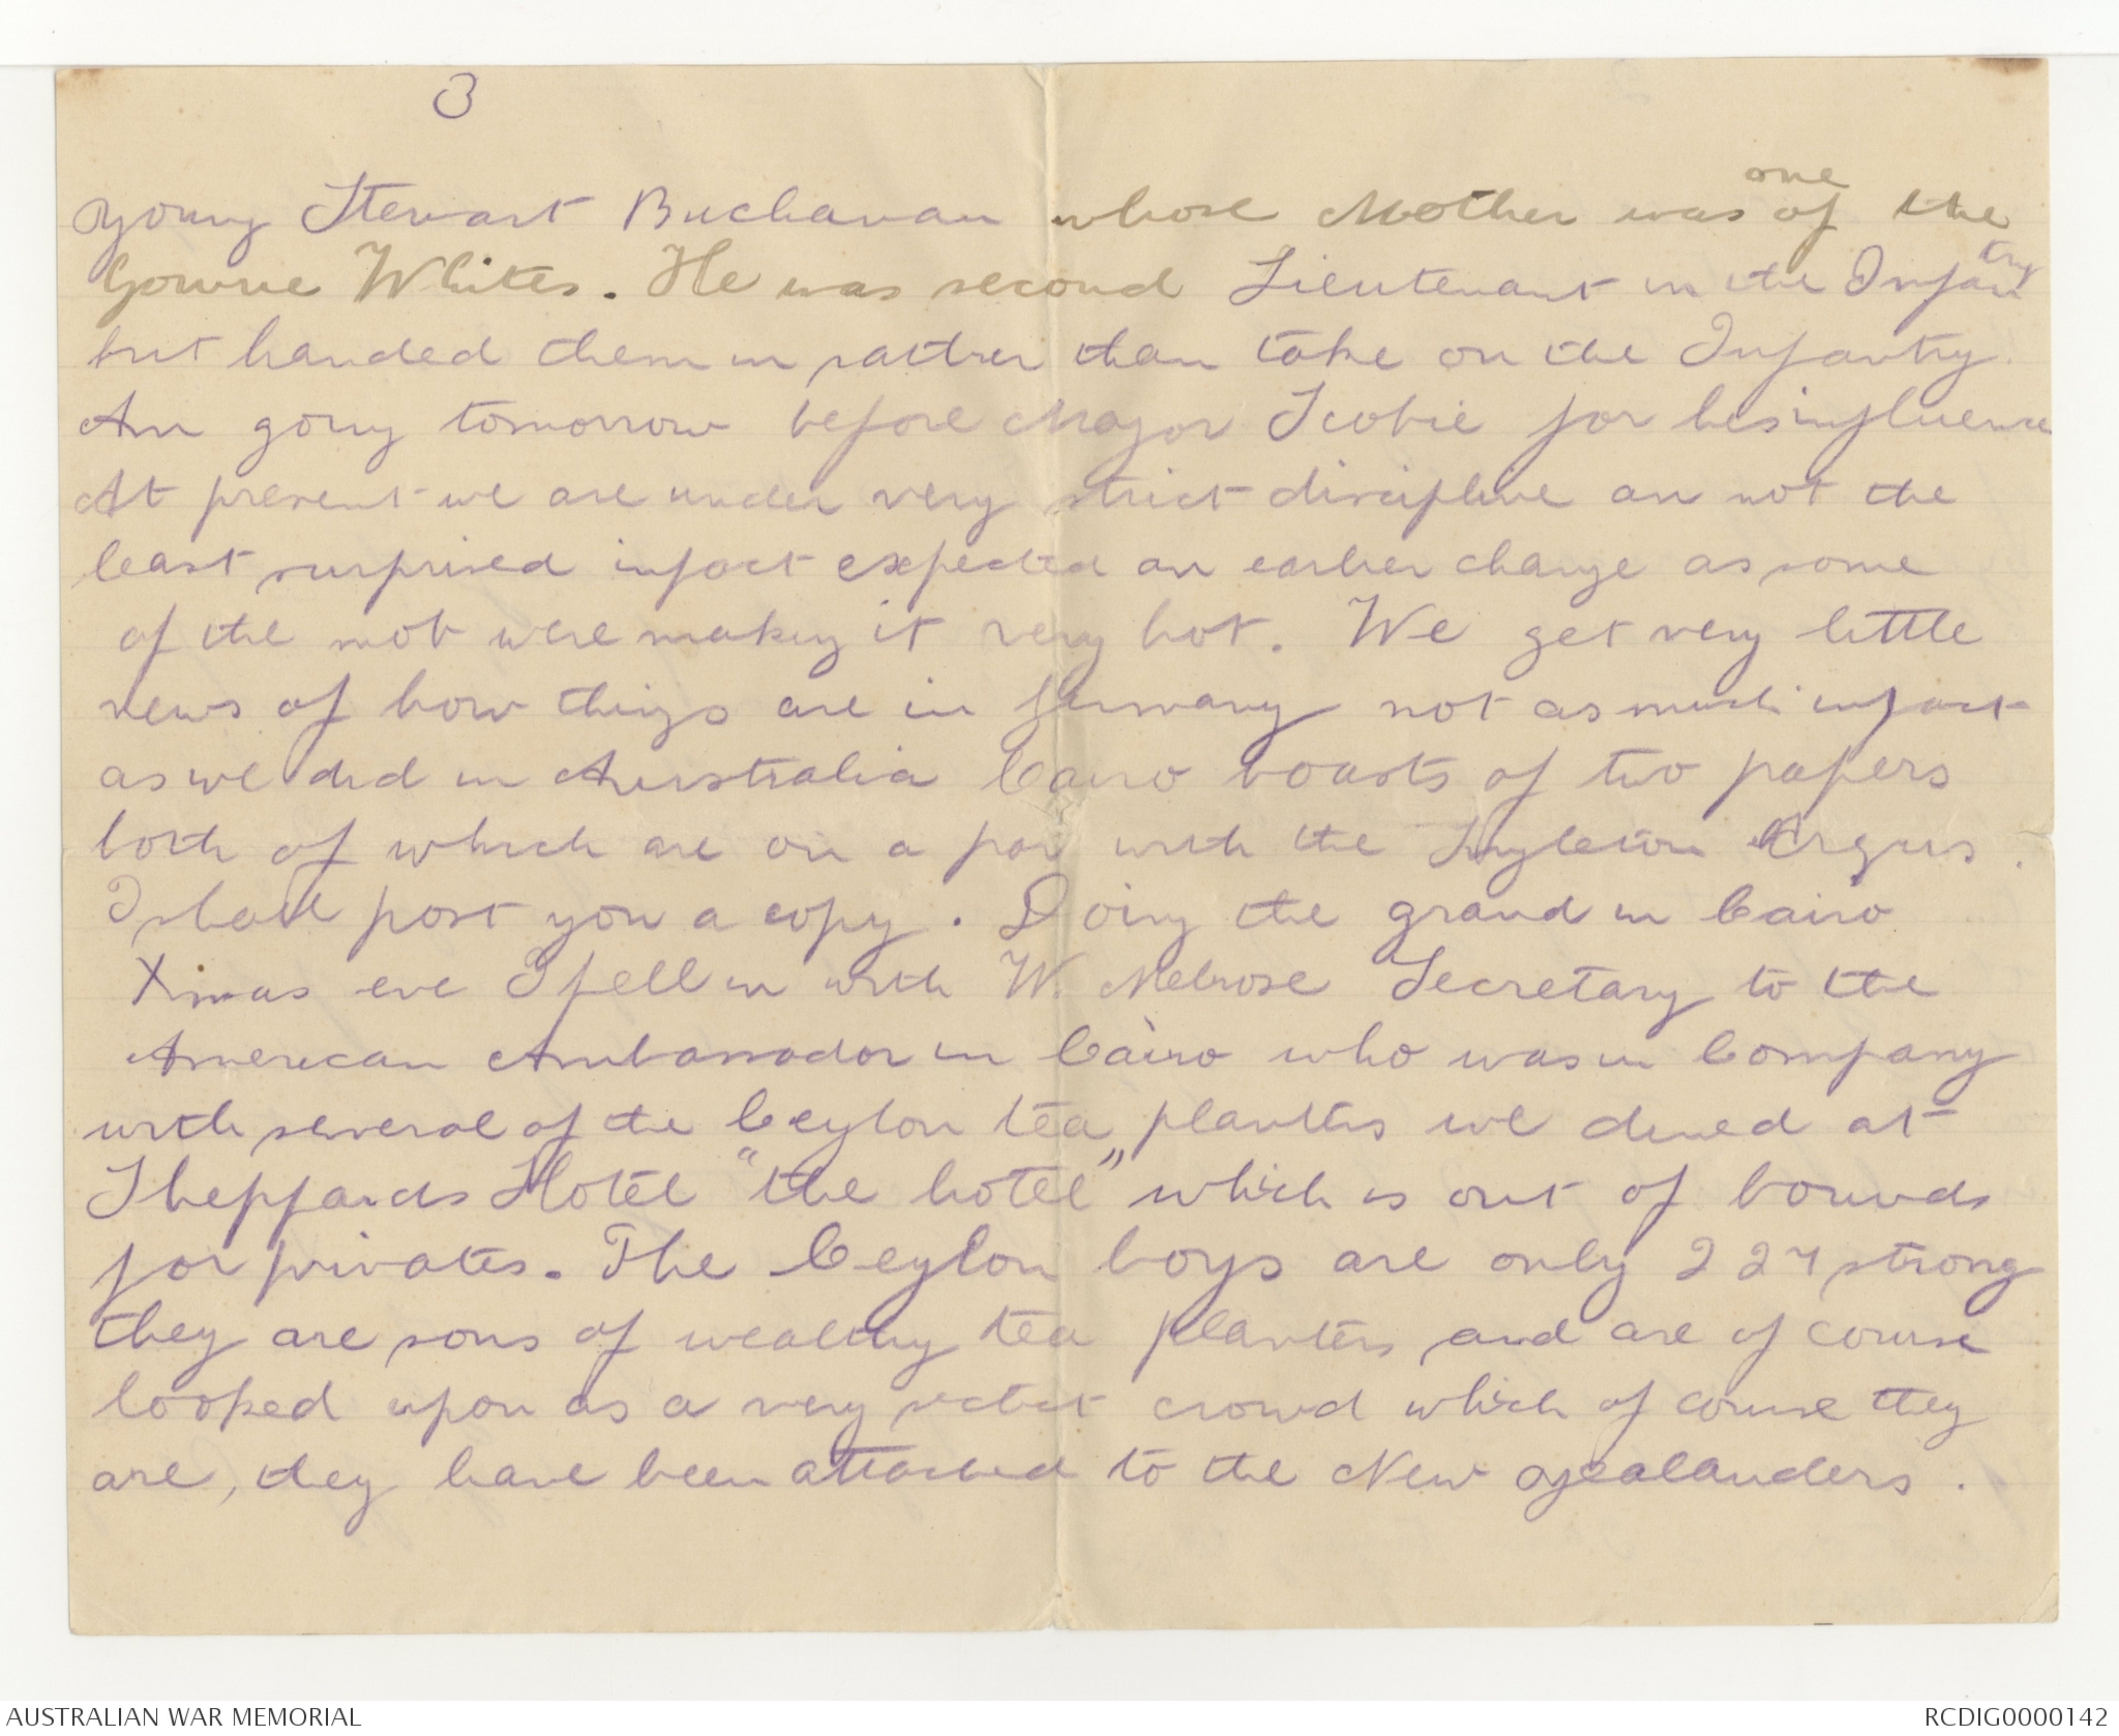 3
young Stewart Buchanan whose Mother was one of the
Gowrie Whites. He was second Lieutenant in the Infantry
but handed them in rather than take on the Infantry.
Am going tomorrow before Major Scobie for his influence
At present we are under very strict discipline am not the
least surprised infact expected an earlier change as some
of the mob were making it very hot. We get very little
news of how things are in Germany not as much infact
as we did in Australia Cairo boasts of two papers
both of which are on a par with the Singleton Argus.
I shall post you a copy. Doing the grand in Cairo
Xmas eve I fell in with W. Melrose Secretary to the
American Ambassador in Cairo who was in Company
with several of the Ceylon tea planters we dined at
Sheppards Hotel "the hotel" which is out of bounds
for privates. The Ceylon boys are only 227 strong
they are sons of wealthy tea planters and are of course
looked upon as a very crowd which of course they
are, they have been attached to the New Zealanders.
AUSTRALIAN WAR MEMORIAL
RCDIG0000142